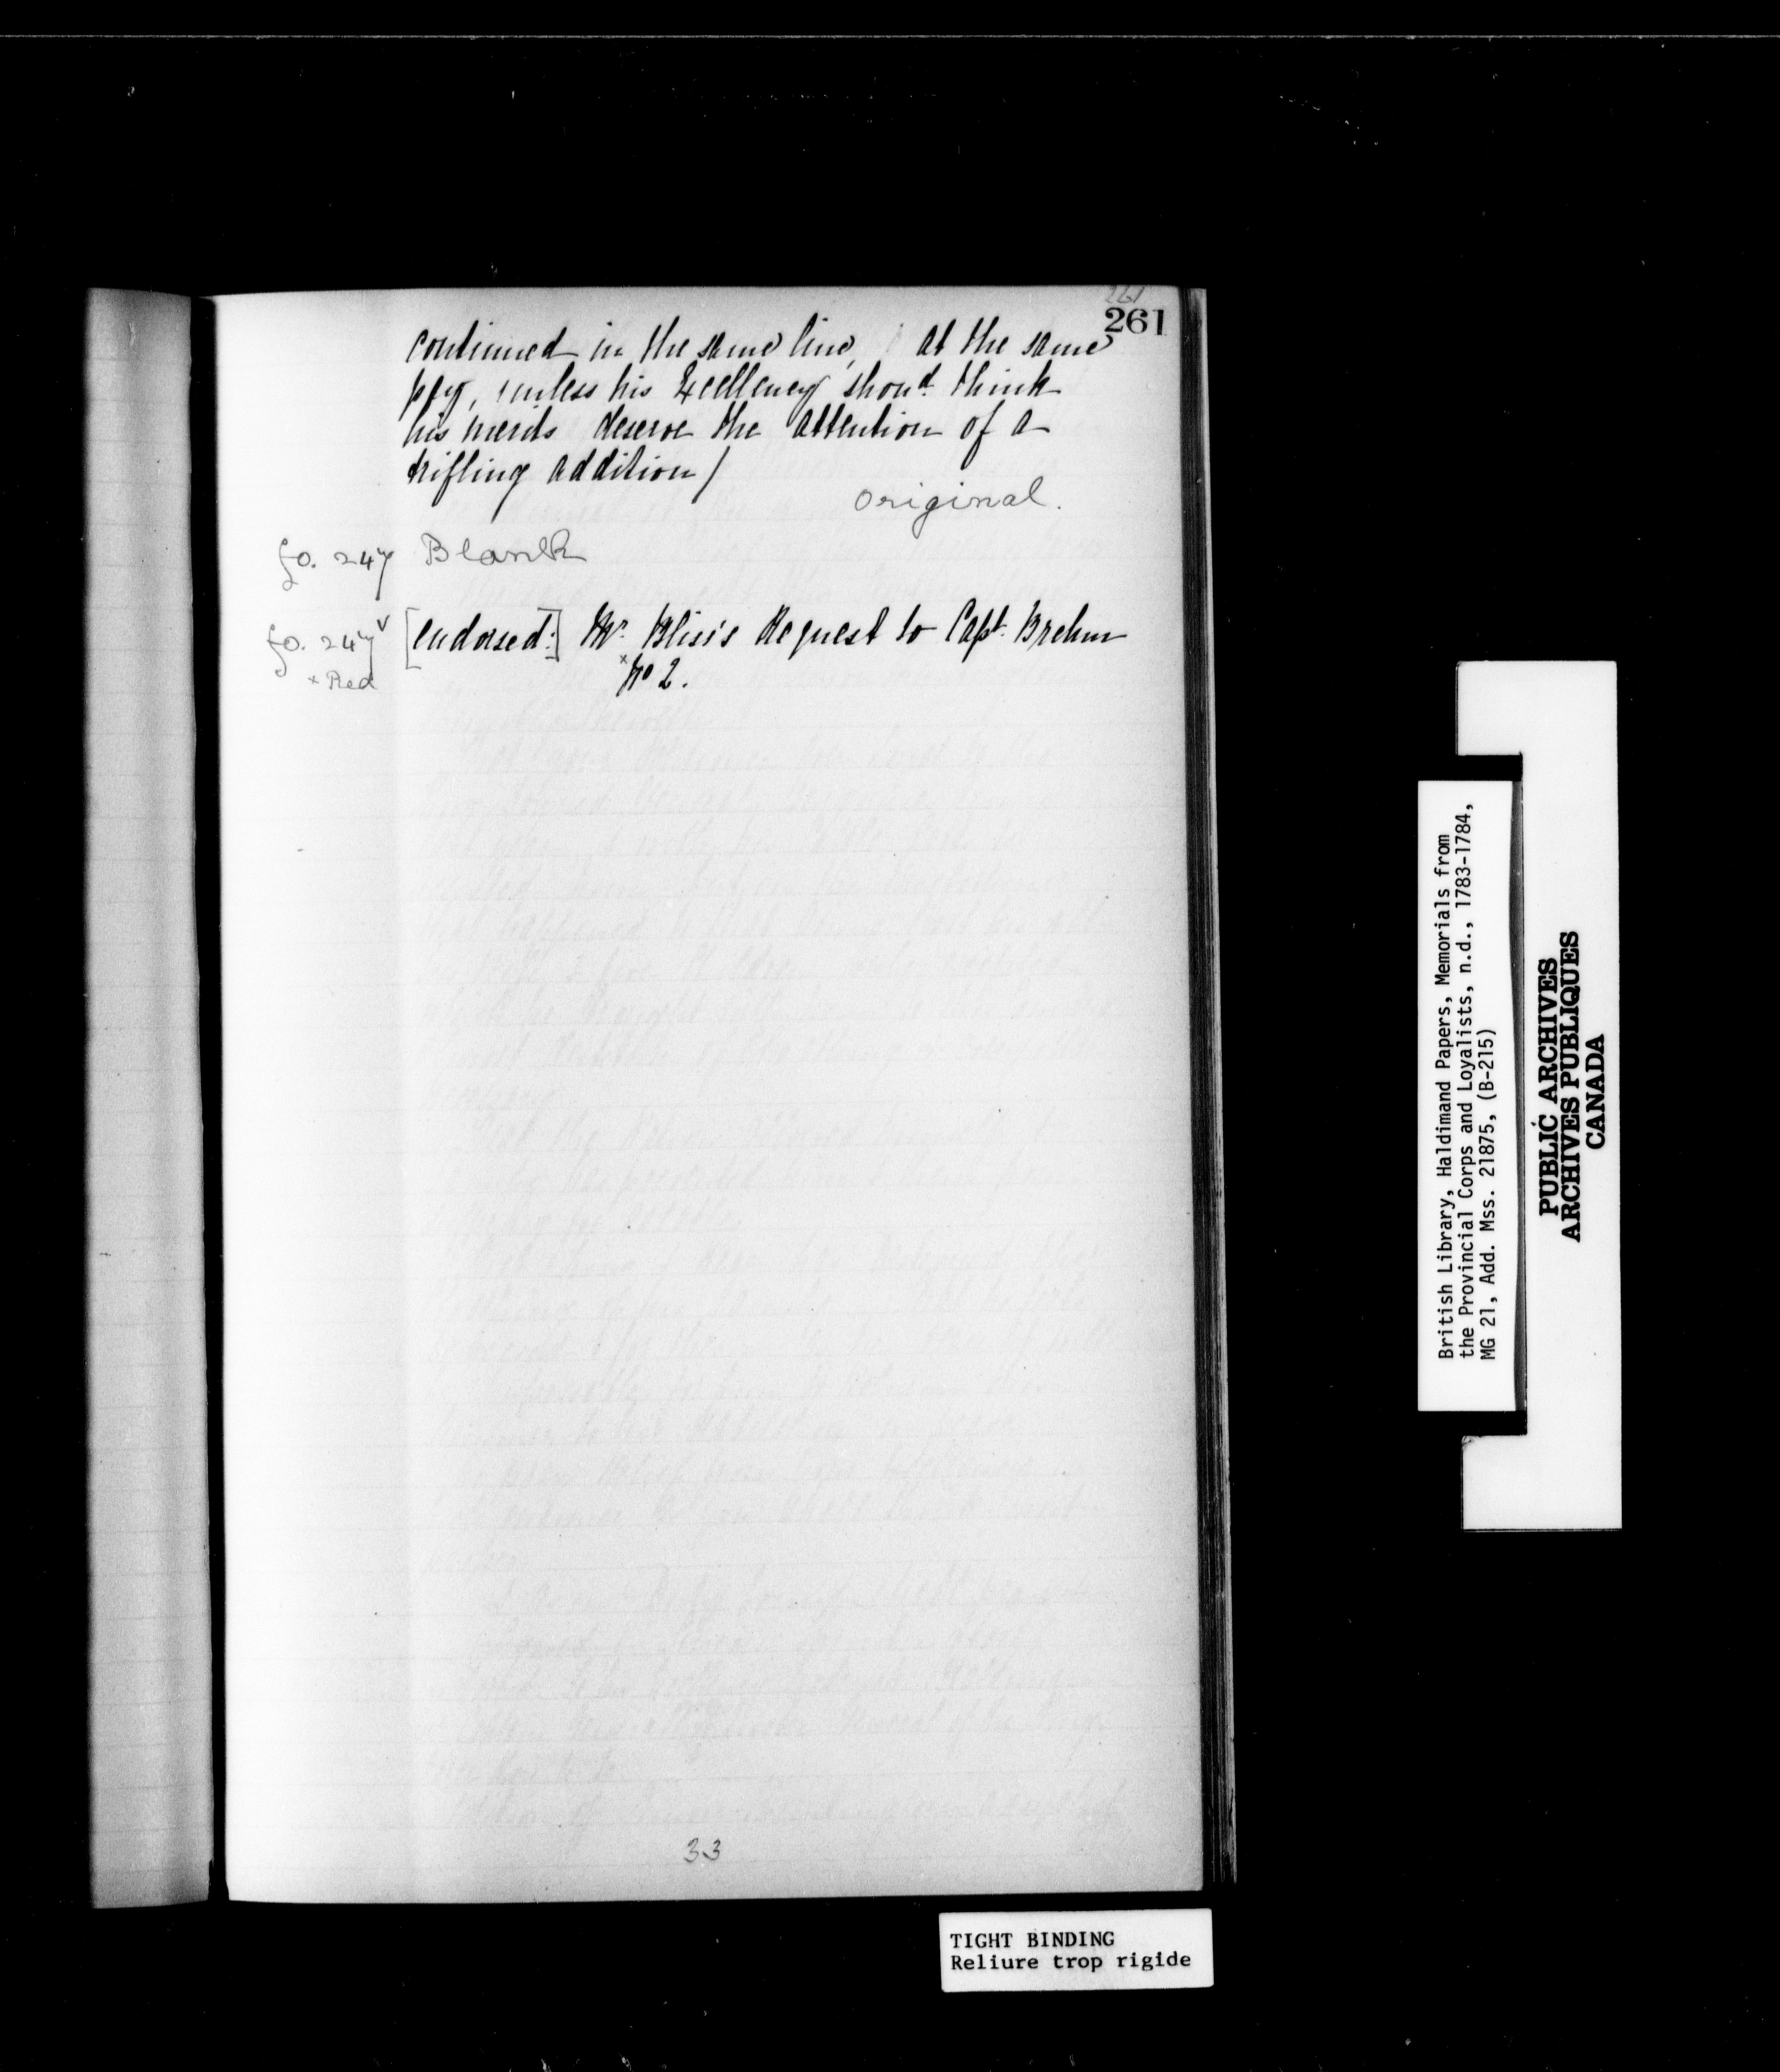 261
261
continued in the same line, at the same
pay, unless his Excellency shoud. think
his merits deserve the attention of a
trifling addition/
original.
fo. 247 Blank
fo. 247v [endorsed:] Mr. Bliss's Request to Capt. Brehm
x Red x No 2.
33
TIGHT BINDING
Reliure trop rigide
British Library, Haldimand Papers, Memorials from
the Provincial Corps and Loyalists, n.d., 1783-1784,
MG 21, Add. Mss. 21875, (B-215)
PUBLIC ARCHIVES
ARCHIVES PUBLIQUES
CANADA